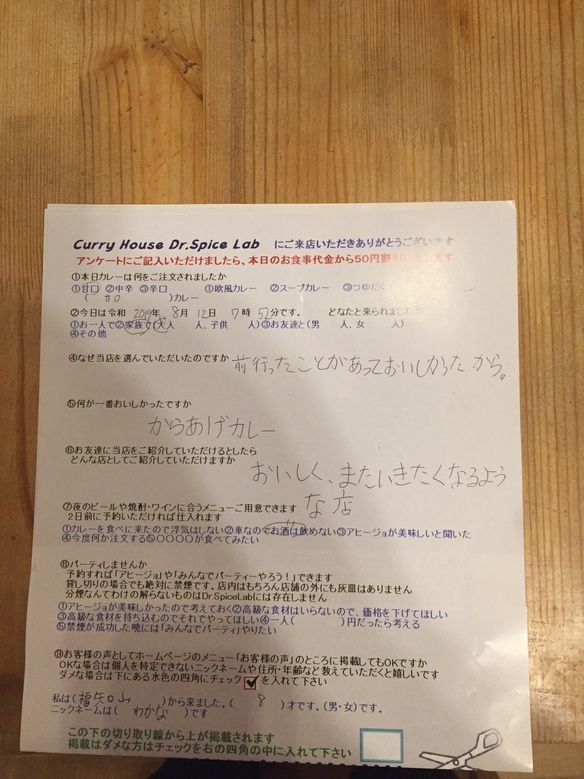 Curry House Dr.Spice Lab にご来店いただきありがとうございます
アンケートにご記入いただけましたら、本日のお食事代金から50円割引いたします
①本日カレーは何をご注文されましたか
①甘口 ②中辛 ③辛口 ①欧風カレー ②スープカレー ③つゆだく
( 甘口 )カレー
②今日は令和 2019年 8月 12日 7時 52分です。 どなたと来られましたか
①お一人で②家族で(大人 人、子供 人)③お友達と(男 人、女 人)
④その他
④なぜ当店を選んでいただいたのですか 前行ったことがあっておいしかったから。
⑤何が一番おいしかったですか
からあげカレー
⑥お友達に当店をご紹介していただけるとしたら
どんな店としてご紹介していただけますか
おいしく、またいきたくなるよう
な店
⑦夜のビールや焼酎・ワインに合うメニューご用意できます
2日前に予約いただければ仕入れます
①カレーを食べに来たので浮気はしない②車なのでお酒は飲めない③アヒージョが美味しいと聞いた
④今度何か注文する⑤〇〇〇〇が食べてみたい
⑧パーティしませんか
予約すれば「アヒージョ」や「みんなでパーティーやろう!」できます
貸し切りの場合でも絶対に禁煙です。店内はもちろん店舗の外にも灰皿はありません
分煙なんてわけの解らないものはDr.SpiceLabには存在しません
①アヒージョが美味しかったので考えておく②高級な食材はいらないので、価格を下げてほしい
③高級な食材を持ち込むのでそれでやってほしい④一人( )円だったら考える
⑤禁煙が成功した暁には「みんなでパーティ」やりたい
⑨お客様の声としてホームページのメニュー「お客様の声」のところに掲載してもOKですか
OKな場合は個人を特定できないニックネームや住所・年齢など教えていただくと嬉しいです
ダメな場合は下にある水色の四角にチェック を入れて下さい
私は( 福知山 )から来ました。( 8 )才です。(男・女)です。
ニックネームは( わかな )です
この下の切り取り線から上が掲載されます
掲載はダメな方はチェックを右の四角の中に入れて下さい